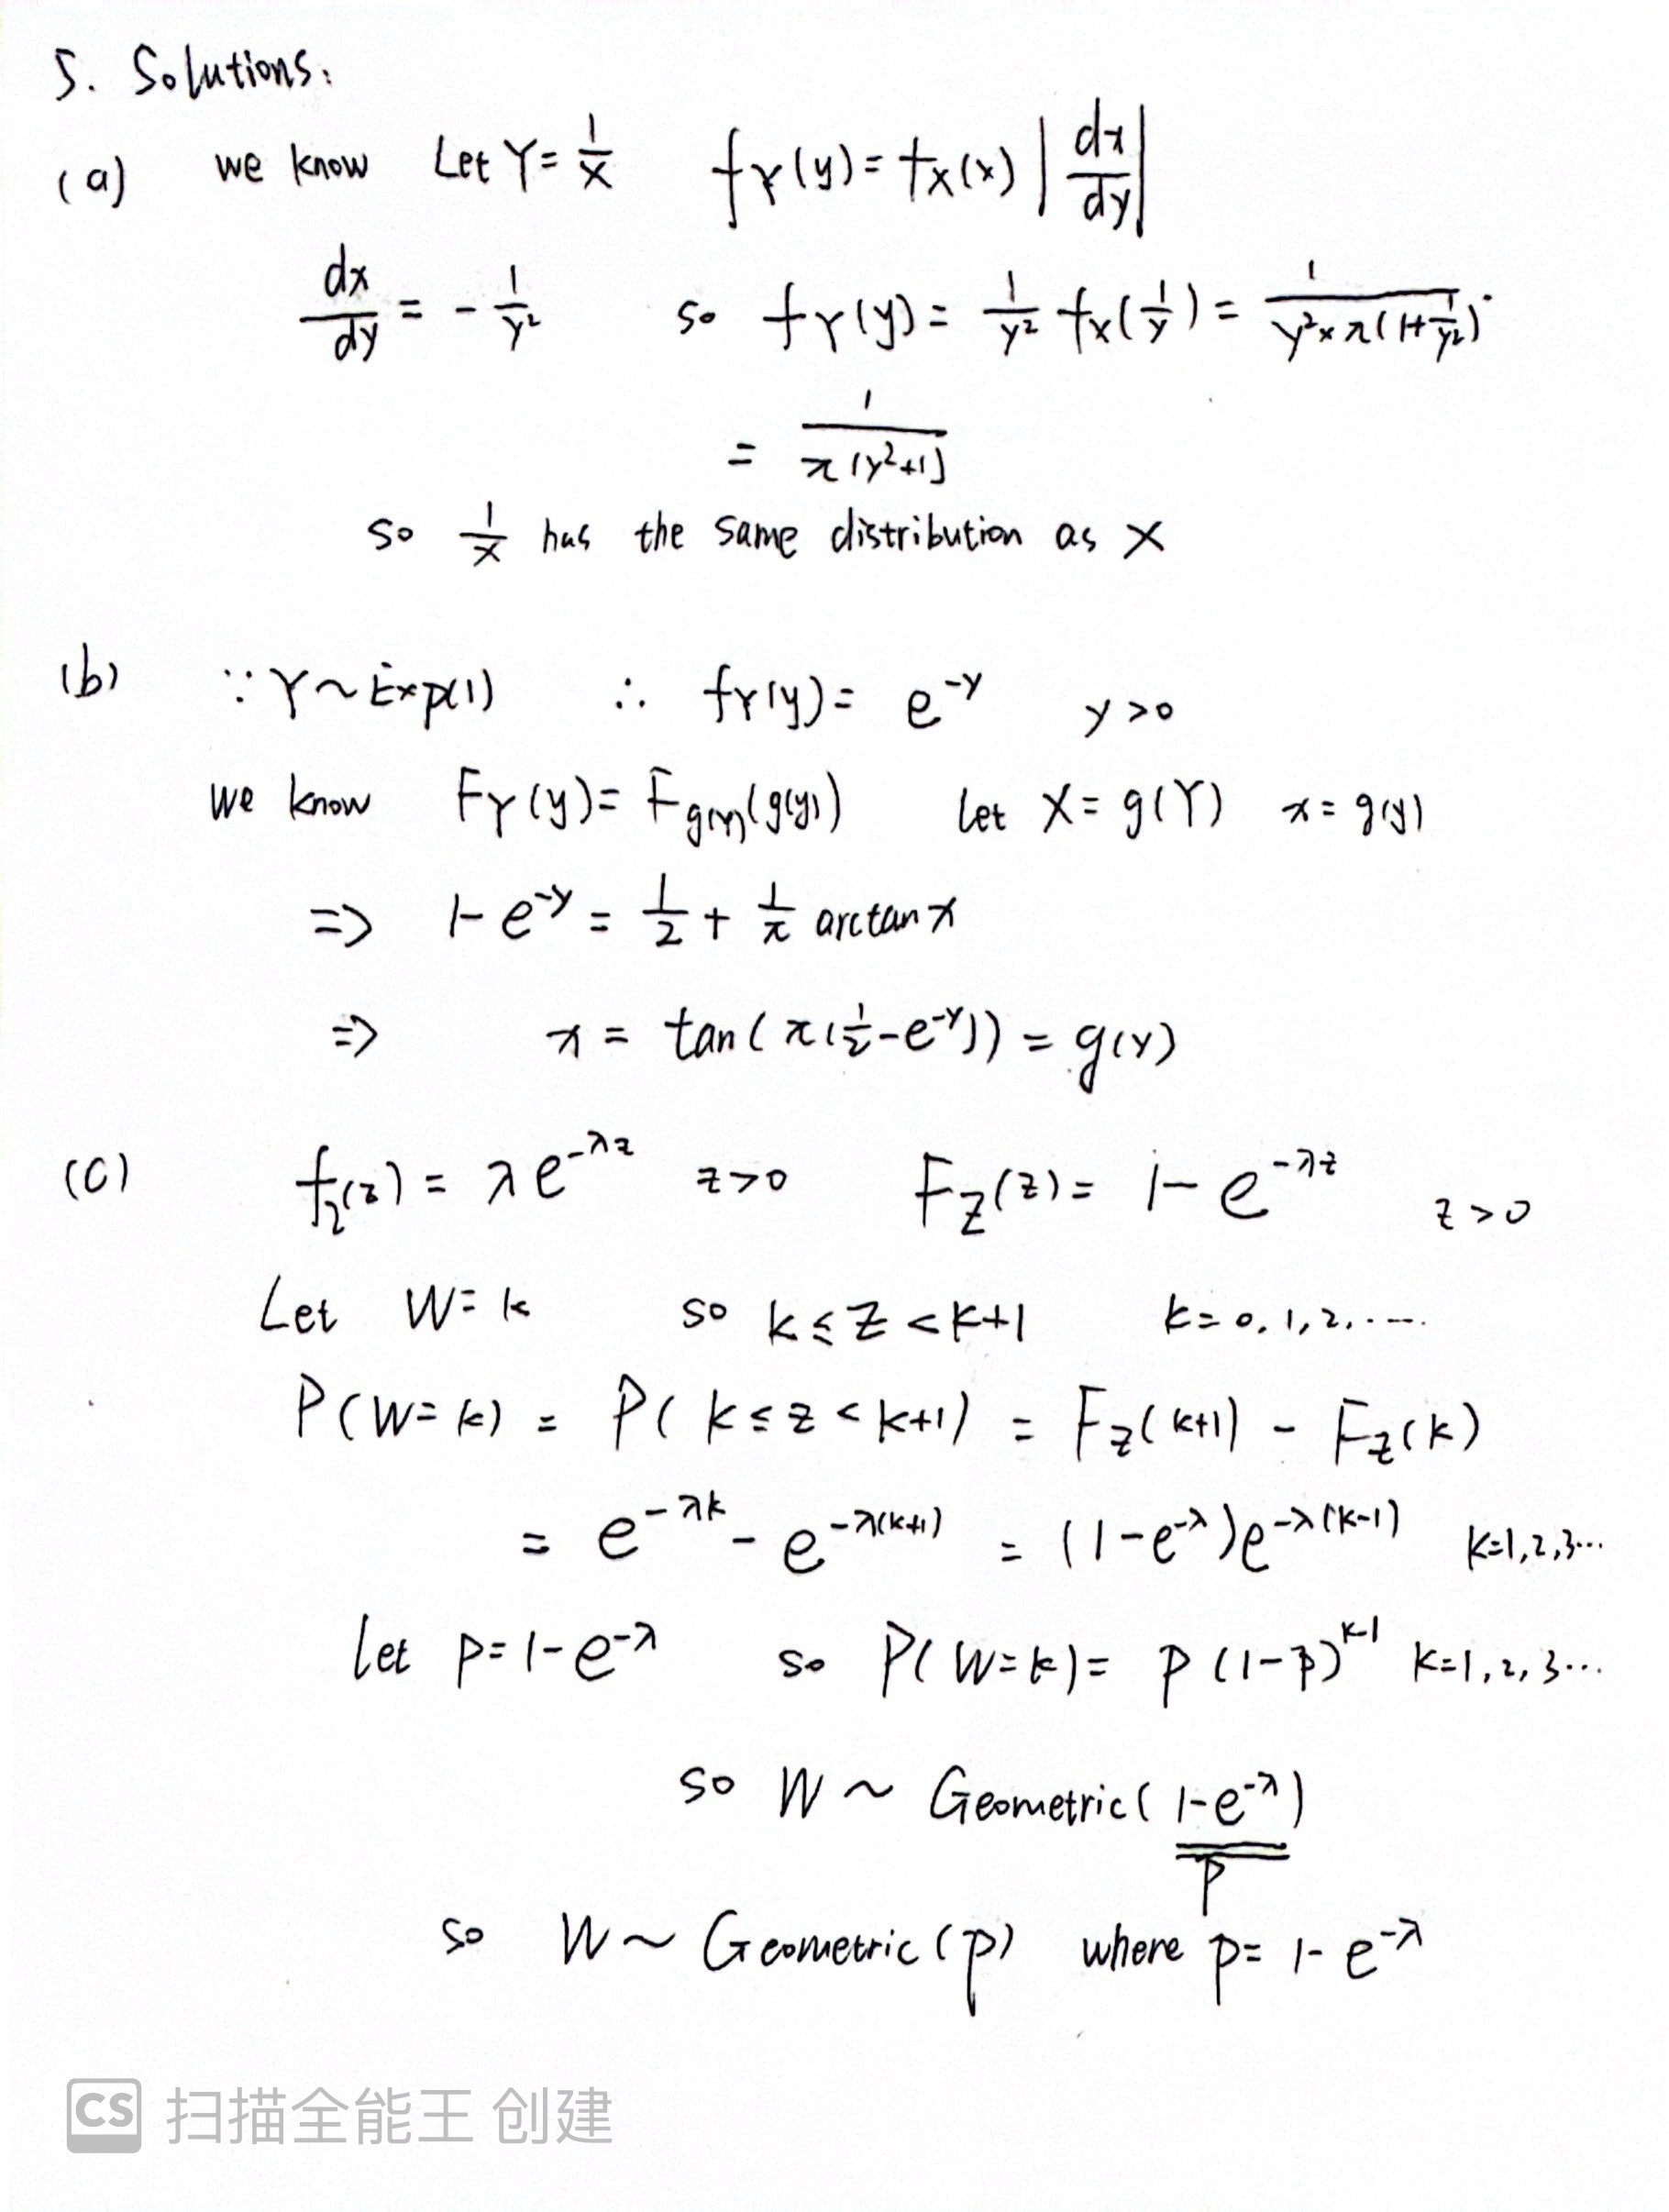 5. Solutions:
(a) we know Let Y = 1/X f_Y(y) = f_X(x) |dx/dy|
dx/dy = - 1/y² so f_Y(y) = 1/y² f_X(1/y) = 1/(y² × π(1+1/y²))
= 1/(π(y²+1))
so 1/X has the same distribution as X
(b) ∵ Y ~ Exp(1) ∴ f_Y(y) = e^{-y} y>0
we know F_Y(y) = F_{g(Y)}(g(y)) Let X = g(Y) x = g(y)
=> 1 - e^{-y} = 1/2 + 1/π arctan x
=> x = tan(π(1/2 - e^{-y})) = g(y)
(c) f_Z(z) = λe^{-λz} z>0 F_Z(z) = 1 - e^{-λz} z>0
Let W = k so k ≤ Z < k+1 k = 0, 1, 2, ...
P(W=k) = P(k ≤ z < k+1) = F_Z(k+1) - F_Z(k)
= e^{-λk} - e^{-λ(k+1)} = (1-e^{-λ})e^{-λ(k-1)} k=1,2,3...
Let p = 1-e^{-λ} so P(W=k) = p(1-p)^{k-1} k=1,2,3...
so W ~ Geometric(1-e^{-λ})
p
so W ~ Geometric(p) where p = 1-e^{-λ}
CS 扫描全能王 创建